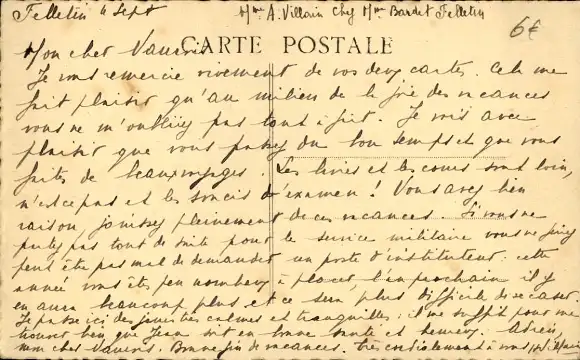 Felletin 4 Sept
Mme A. Villain Chez Mme Bardet Felletin
6€
CARTE POSTALE
Mon cher
Je vous remercie vivement de vos deux cartes. Cela me
fait plaisir qu'au milieu de la joie des vacances
vous ne m'oubliiez pas tout à fait. Je vois avec
plaisir que vous passez du bon temps et que vous
faites de beaux voyages. Les livres et les cours sont loin,
n'est-ce pas et les soucis d'examen ! Vous avez bien
raison jouissez pleinement de ces vacances. Si vous ne
partez pas tout de suite pour le service militaire vous ne feriez
peut être pas mal de demander un poste d'instituteur. cette
année vous êtes peu nombreux à placer, l'an prochain il y
en aura beaucoup plus et ce sera plus difficile de se caser.
Je passe ici des journées calmes et tranquilles : il me suffit pour me
trouver bien que Jean soit en bonne santé et heureux. Adieu,
mon cher Bonne fin de vacances. Très cordialement à vous